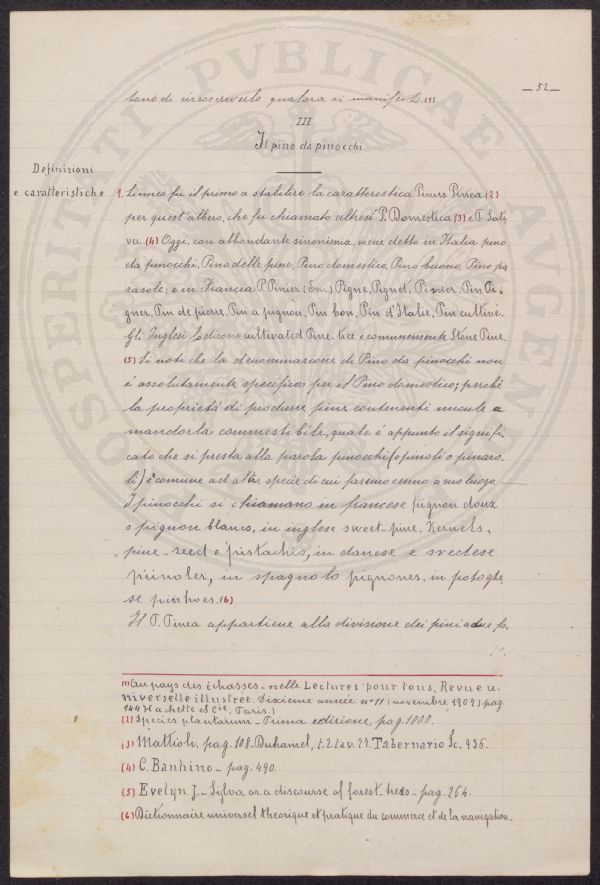 — 52 —
tono di circoscriverlo qualora si manifesti. (1)
III
Il pino da pinocchi
Definizioni
e caratteristiche
1. Linneo fu il primo a stabilire la caratteristica Pinus Pinea (2)
per quest'albero, che fu chiamato altresì P. Domestica (3) e P. Sati-
va (4) Oggi, con abbondante sinonimia, viene detto in Italia pino
da pinocchi, Pino delle pine, Pino domestico, Pino buono, Pino pa
rasole; e in Francia P. Pinier (En.) Pigne, Pignet, Pinier, Pin Pi-
gner, Pin de pierre, Pin a pignon, Pin bon, Pin d'Italie, Pin cultivé.
Gli Inglesi lo dicono cultevated Pine-tree e comunemente Stone Pine.
(5) Si noti che la denominazione di Pino da pinocchi non
è assolutamente specifica per il Pino domestico; perchè
la proprietà di produrre pine contenenti nucule a
mandorla commestibile, quale è appunto il signifi-
cato che si presta alla parola pinocchi (o pinoli o pinaro-
li) è comune ad altre specie di cui faremo cenno a suo luogo
I pinocchi si chiamano in francese pignon doux
o pignon blanco, in inglese sweet-pine, Kernels,
pine-seed o pistachis, in danese e svedese
piinoler, in spagnolo pignones, in potoghe-
se pinhoes. (6)
Il P. Pinea appartiene alla divisione dei pini a due fo-
(1) (Au pays des échasses - nelle Lectures pour tous, Revue u-
niverselle illustrée. Dixieme année. n° 11 (novembre 1907) pag
144 Hachette et Cie. Paris.)
(2) Species plantarum - Prima edizione, pag. 1000.
(3) Mattioli. pag. 108 - Duhamel, t. 2. tav. 27. Tabernario Ic. 936.
(4) C. Banhino - pag. 490.
(5) Evelyn J. - Sylva or a discourse of forest-trees - pag. 264.
(6) Dictionnaire universel theorique et pratique du commerce et de la navigation.
PVBLICAE
PROSPERITATI
AVGENDAE